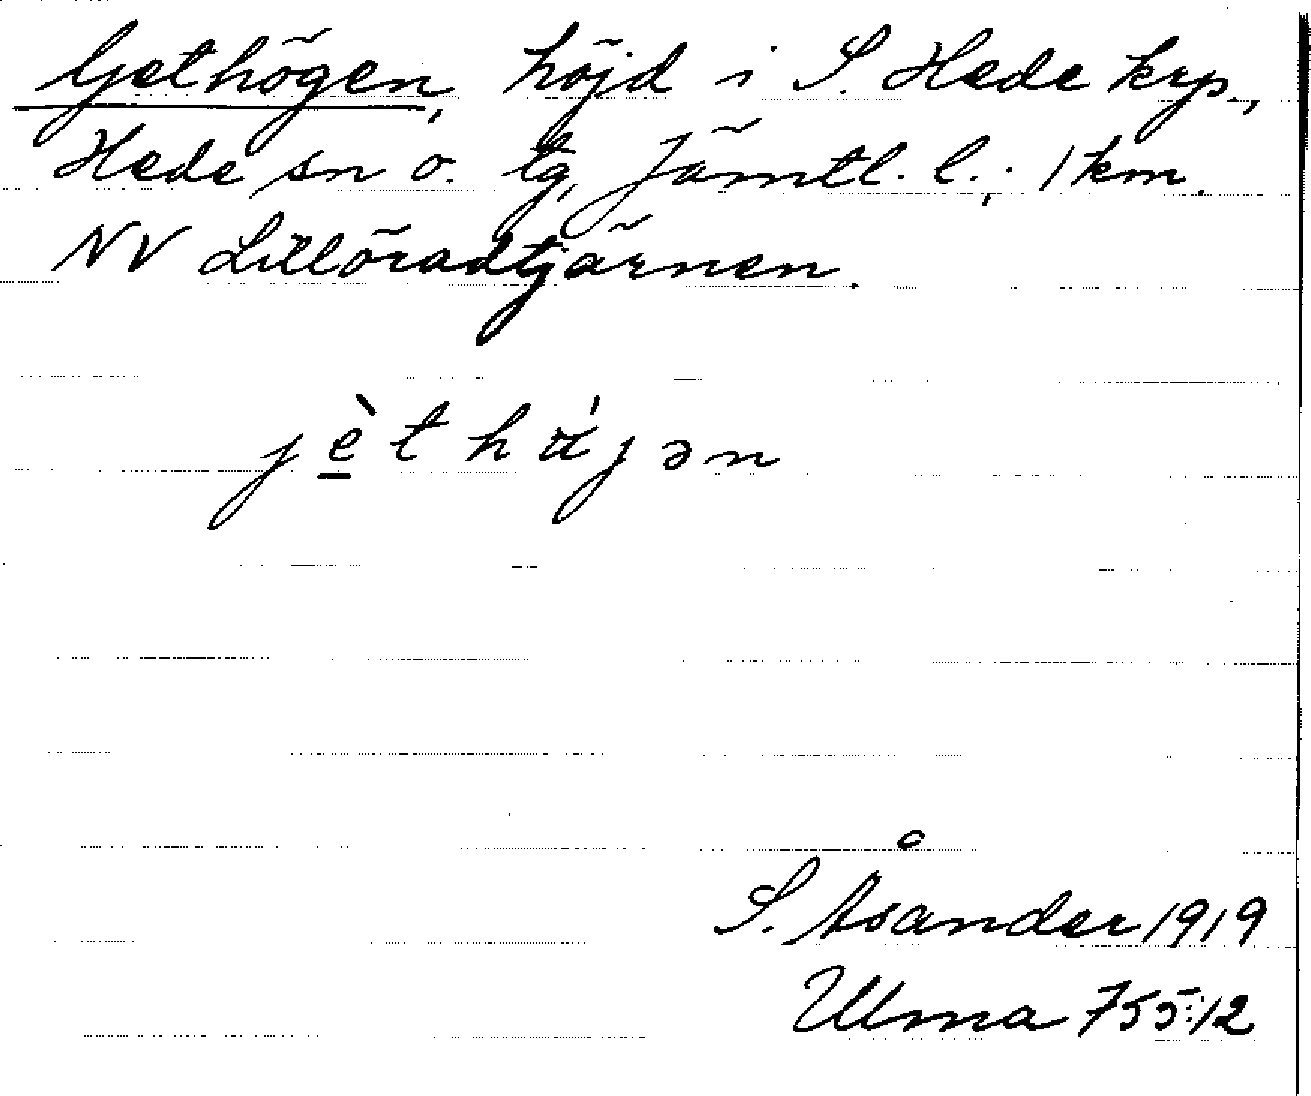 Gethögen, höjd i S. Hede krp.,
Hede sn o. tg, Jämtl. l.; 1 km.
NV Lillöradtjärnen.
jè̱thα̈́jən
S. Åsander 1919
Ulma 755:12